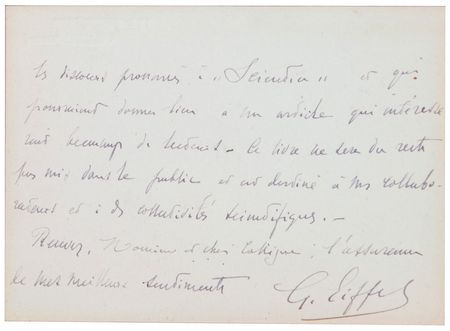 les discours prononcés à "Scientia" et qui
pourraient donner lieu à un article qui intéresse
rait beaucoup de lecteurs - Ce livre ne sera du reste
pas mis dans le public et est destiné à mes collabo-
rateurs et à des collectivités scientifiques. -
Recevez, Monsieur et cher Collègue, l'assurance
de mes meilleurs sentiments
G. Eiffel